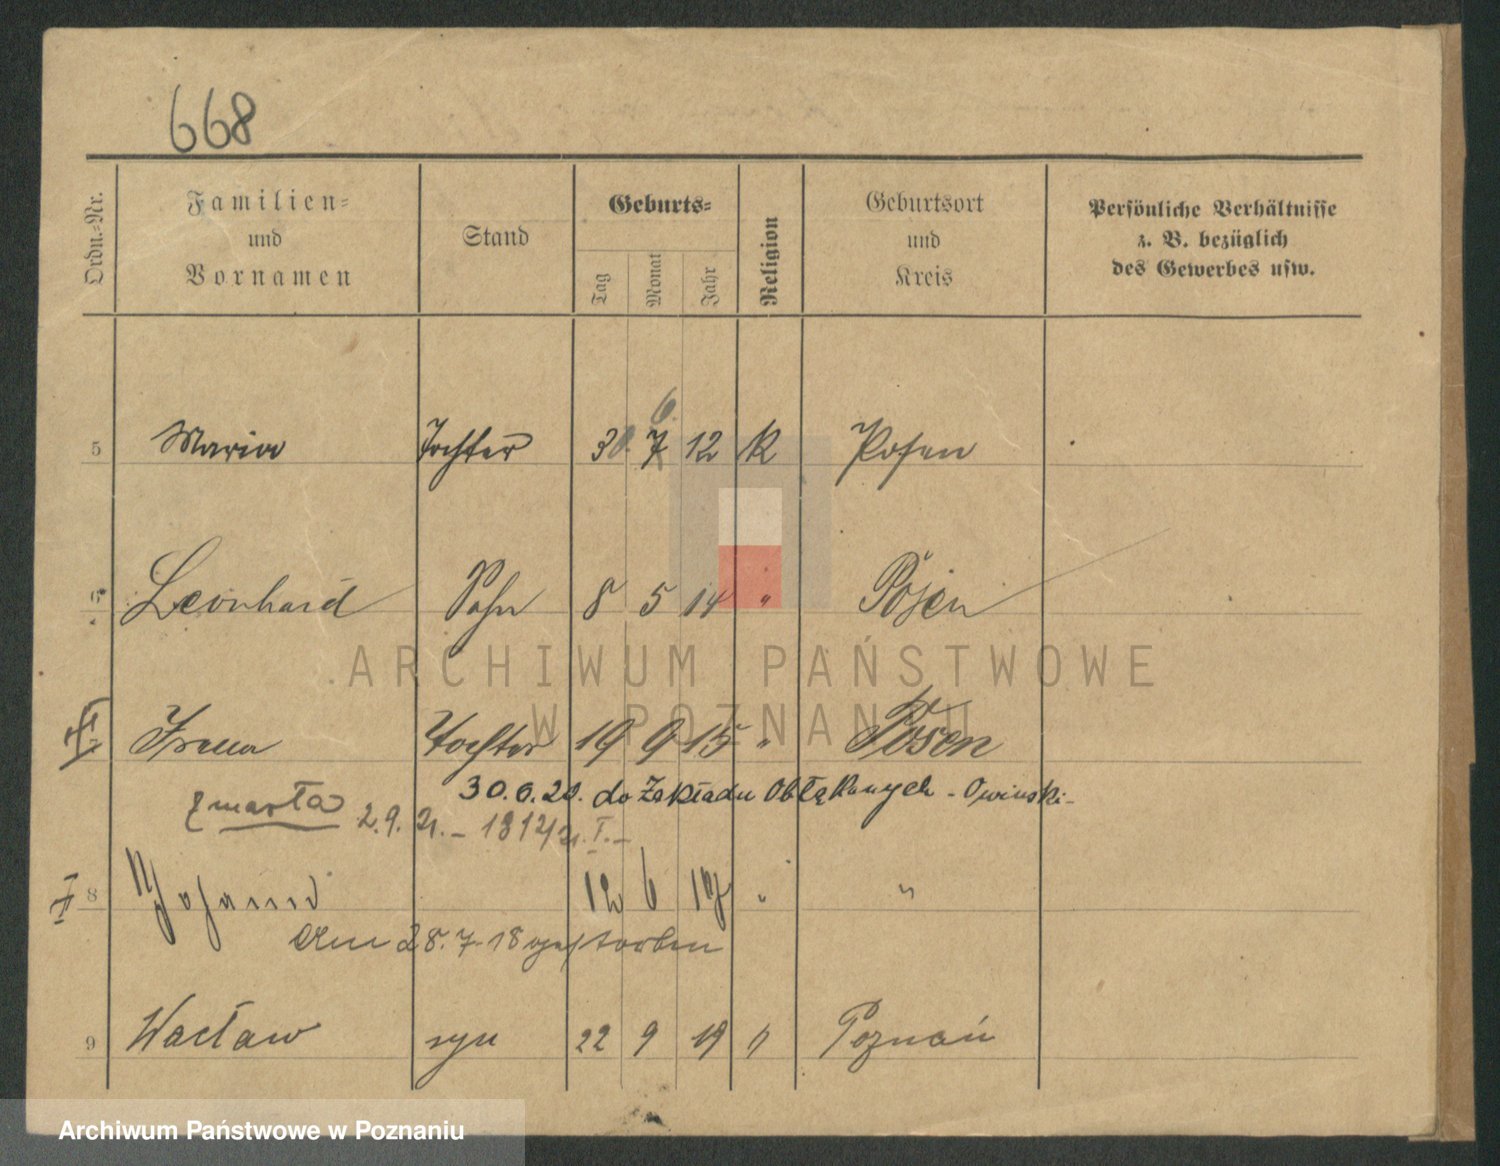 668
Ordn.-Nr.
Familien-
und
Vornamen
Stand
Geburts-
Tag
Monat
Jahr
Religion
Geburtsort
und
Kreis
Persönliche Verhältnisse
z. B. bezüglich
des Gewerbes usw.
6.
5 Maria Tochter 30. 7 12 K Posen
6 Leonhard Sohn 8 5 14 " Posen
ARCHIWUM PAŃSTWOWE
W POZNANIU
Irena Tochter 19 9 15 " Posen
30.6.20. do Zakładu Obłąkanych - Owinski-
zmarła 2.9.21. - 1812/21. I. -
8 Johann 12 6 17 " "
Am 28.7.18 gestorben
9 Wacław syn 22 9 19 " Poznań
Archiwum Państwowe w Poznaniu